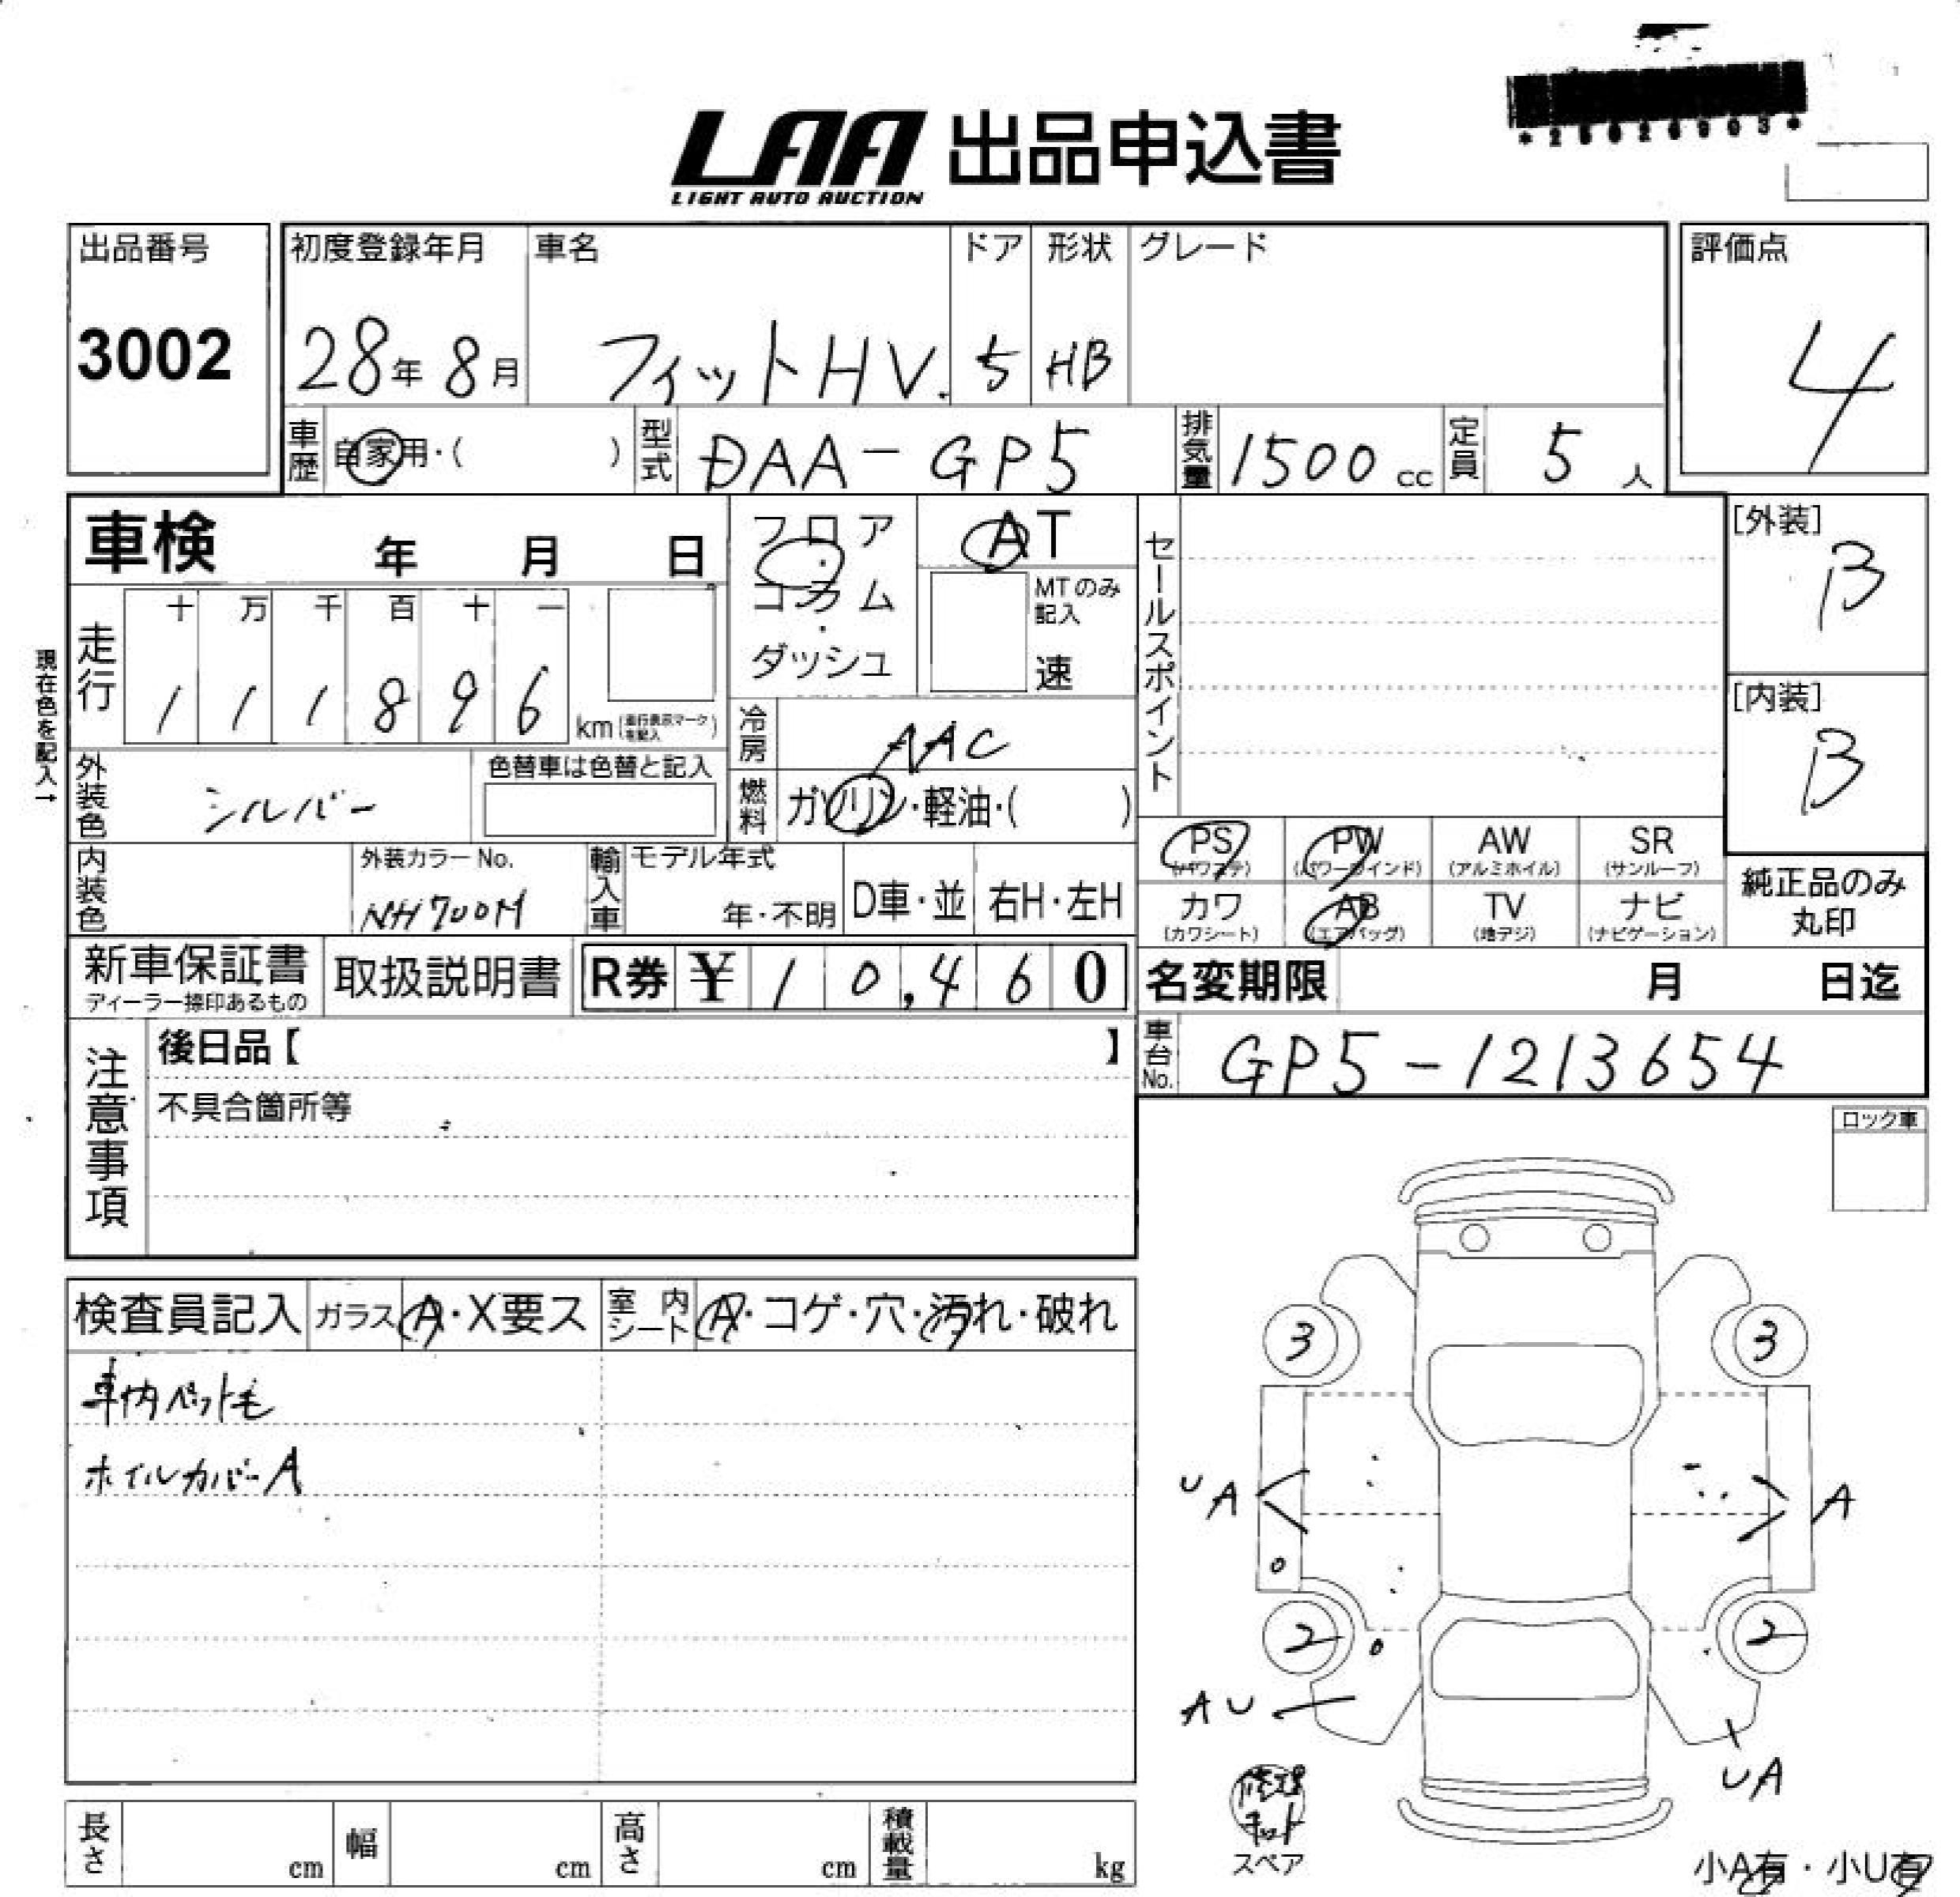 *25026903*
LAA 出品申込書
LIGHT AUTO AUCTION
出品番号
3002
初度登録年月
28年 8月
車名
フィットHV.
ドア
5
形状
HB
グレード
評価点
4
車歴 自家用・( )
型式 DAA-GP5
排気量 1500 cc
定員 5 人
車検 年 月 日
フロア・コラム・ダッシュ
AT
MTのみ記入
速
セールスポイント
[外装]
B
[内装]
B
現在色を記入→
走行 十 万 千 百 十 一
1 1 1 8 9 6 km(走行表示マークを記入)
冷房 AAC
外装色 シルバー
色替車は色替と記入
燃料 ガソリン・軽油・( )
内装色
外装カラーNo.
NH700M
輸入車 モデル年式
年・不明 D車・並 右H・左H
PS (パワステ)
PW (パワーウインド)
AW (アルミホイル)
SR (サンルーフ)
カワ (カワシート)
AB (エアバッグ)
TV (地デジ)
ナビ (ナビゲーション)
純正品のみ
丸印
新車保証書
ディーラー捺印あるもの
取扱説明書
R券 ¥ 1 0,4 6 0
名変期限 月 日迄
車台No. GP5-1213654
注意事項
後日品【 】
不具合箇所等
ロック車
検査員記入 ガラス A・X要ス 室内シート A・コゲ・穴・汚れ・破れ
車内ペット毛
ホイルカバーA
3 3
UA A
2 2
AU
UA
修理キット
スペア
長さ cm 幅 cm 高さ cm 積載量 kg
小A有・小U有